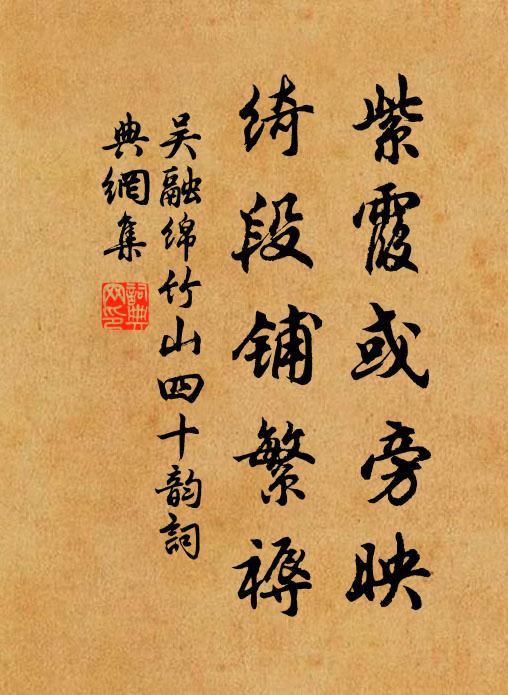 紫霞或旁映
绮段铺繁褥
吴融绵竹山四十韵词
典網集
詞典网印